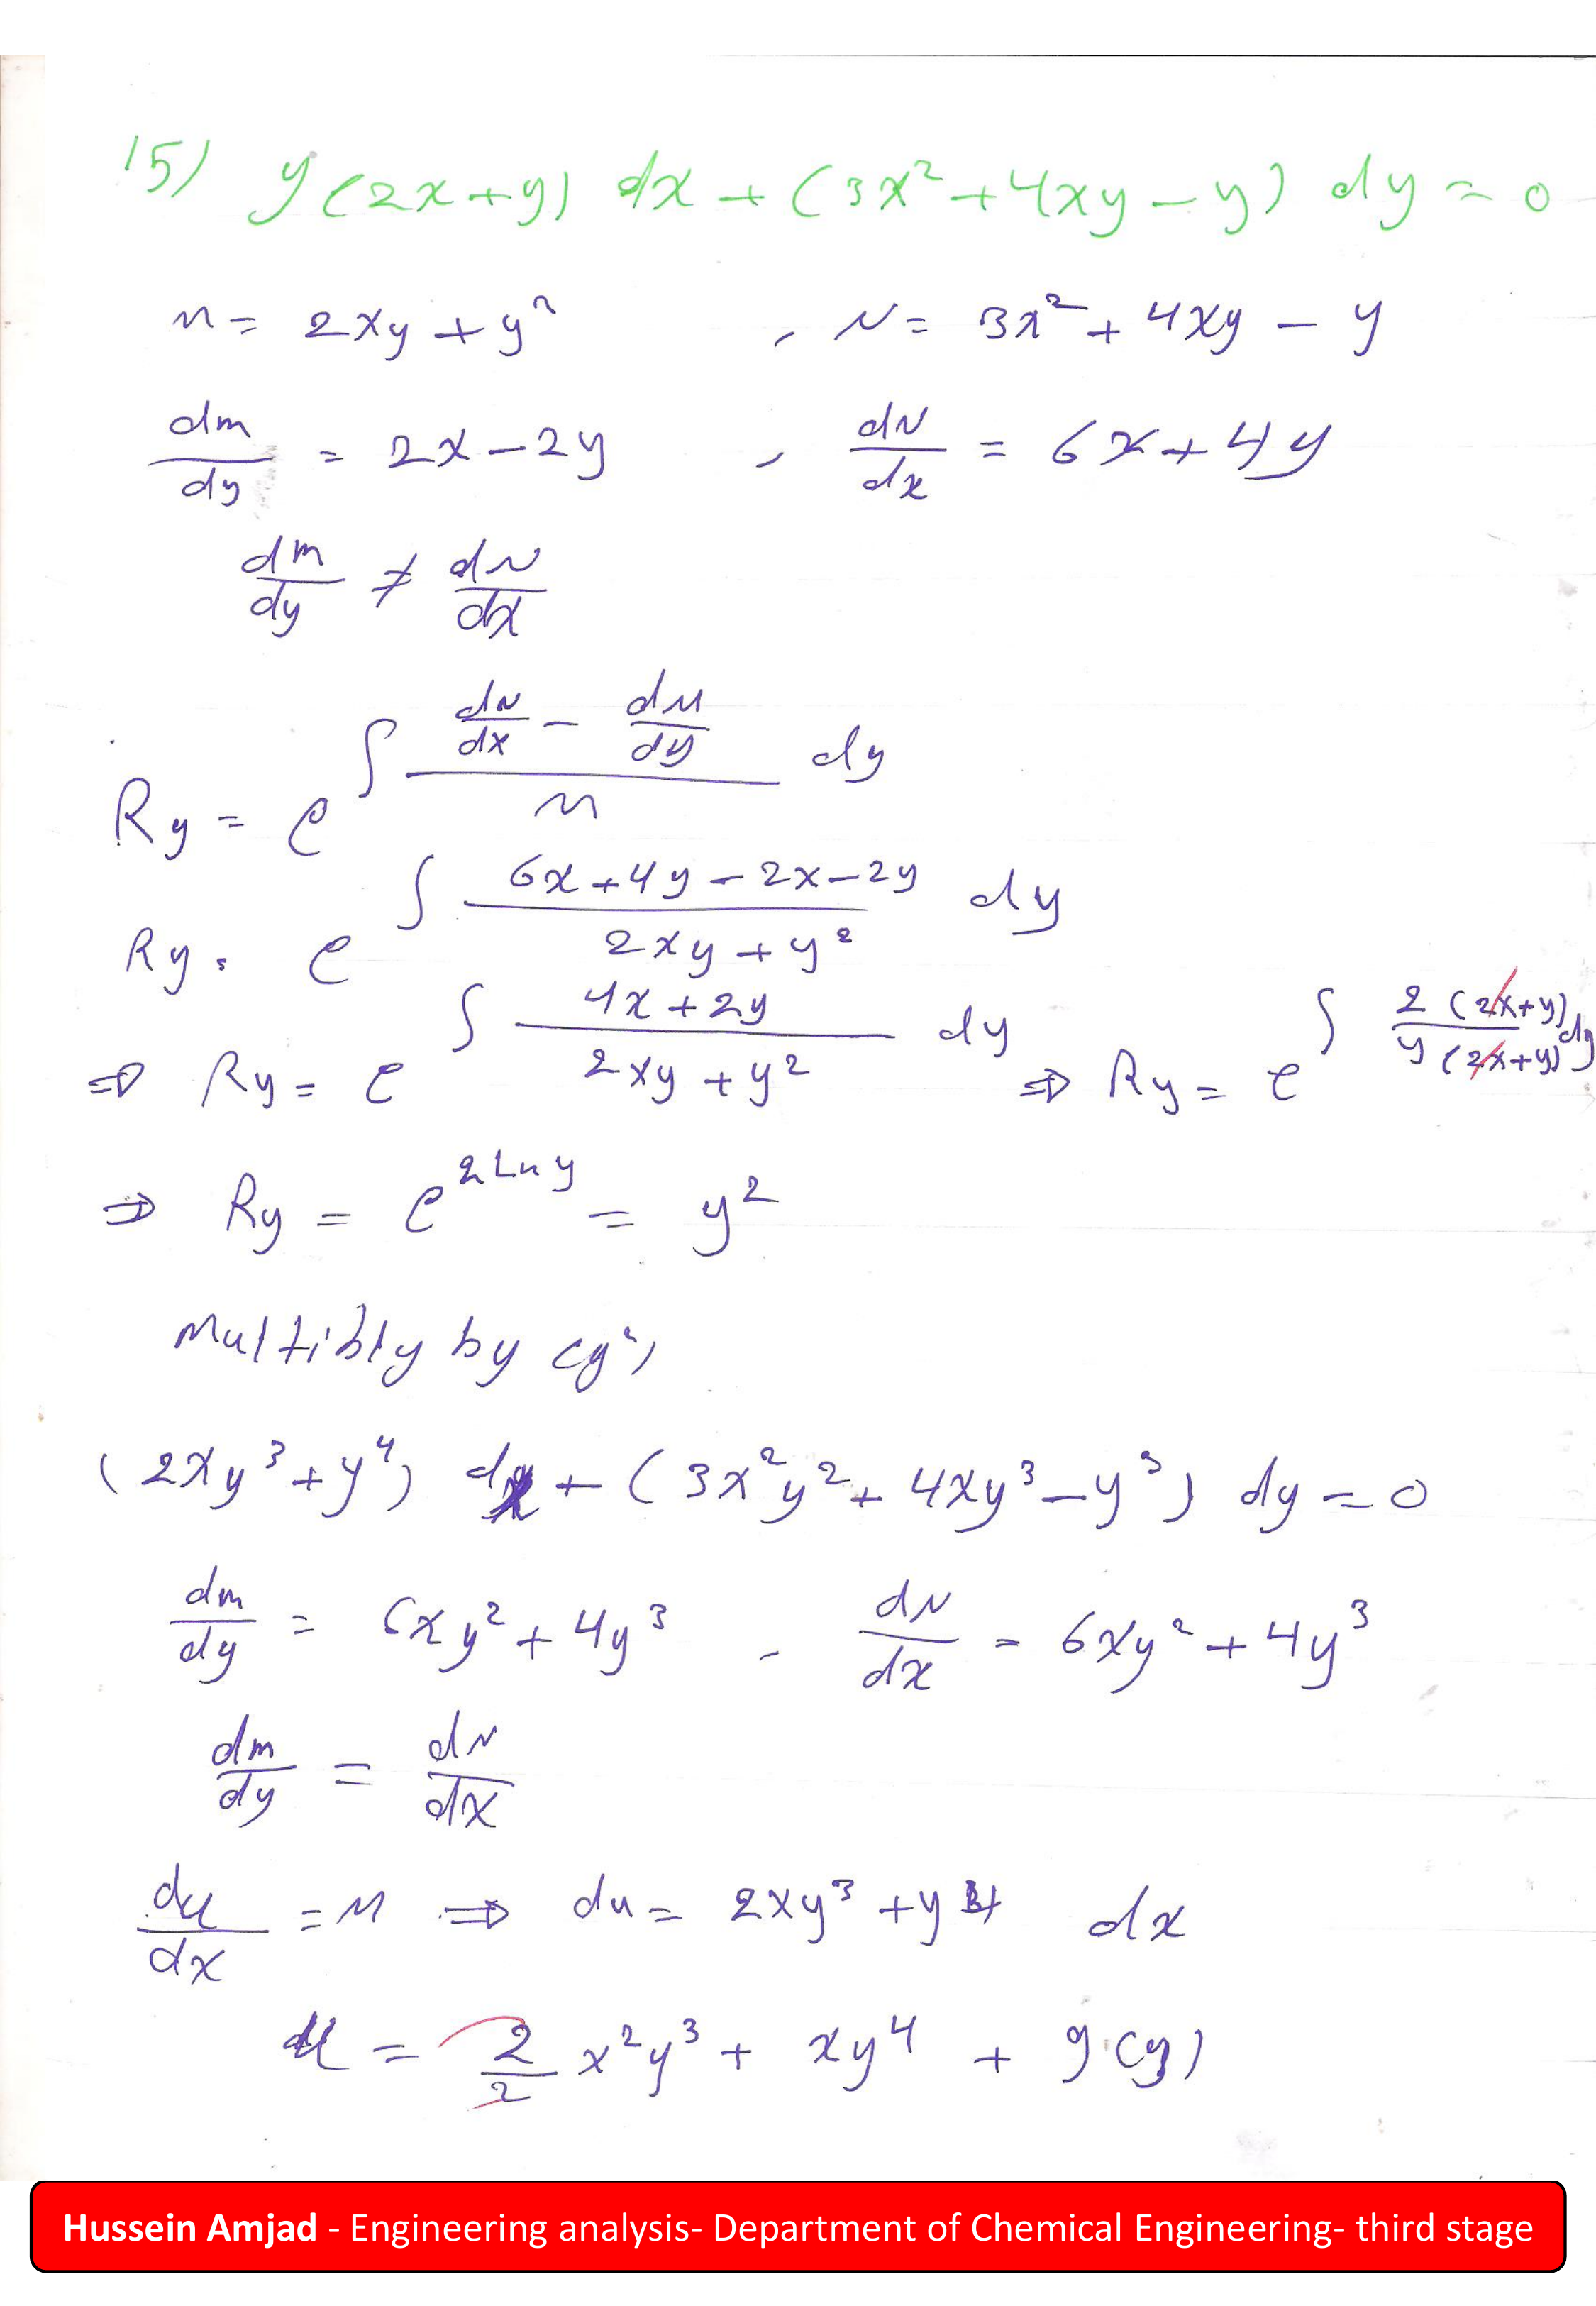 15) y(2x+y) dx + (3x²+4xy-y) dy = 0
M = 2xy + y² , N = 3x² + 4xy - y
dm/dy = 2x-2y , dN/dx = 6x+4y
dm/dy ≠ dN/dx
Ry = e^∫ (dN/dx - dM/dy)/M dy
Ry = e^∫ (6x+4y-2x-2y)/(2xy+y²) dy
⇒ Ry = e^∫ (4x+2y)/(2xy+y²) dy ⇒ Ry = e^∫ 2(2x+y)/y(2x+y) dy
⇒ Ry = e^(2 Ln y) = y²
Multibly by (y²)
(2xy³+y⁴) dx + (3x²y²+4xy³-y³) dy = 0
dm/dy = 6xy²+4y³ , dN/dx = 6xy²+4y³
dm/dy = dN/dx
du/dx = M ⇒ du = 2xy³+y⁴ dx
u = 2/2 x²y³ + xy⁴ + g(y)
Hussein Amjad - Engineering analysis- Department of Chemical Engineering- third stage